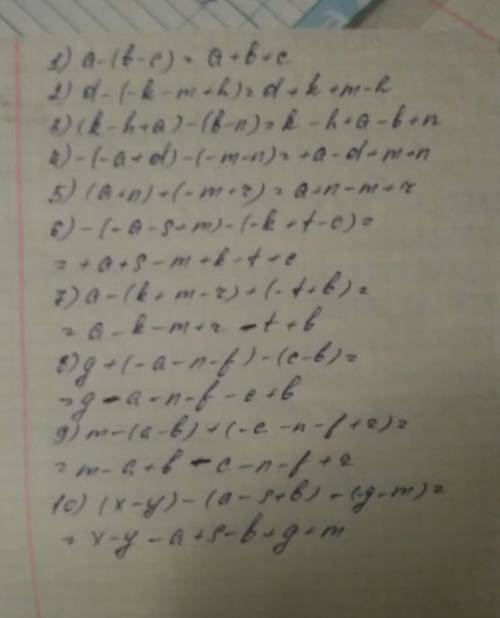 1) a-(b-c)= a+b+c
2) d-(-k-m+h)=d+k+m-h
3) (k-h+a)-(b-n)=k-h+a-b+n
4) -(-a+d)-(-m-n)=+a-d+m+n
5) (a+n)+(-m+r)=a+n-m+r
6) -(-a-s+m)-(-k+t-c)=
=+a+s-m+k-t+c
7) a-(k+m-r)+(-t+b)=
=a-k-m+r-t+b
8) g+(-a-n-f)-(c-b)=
=g-a-n-f-c+b
9) m-(a-b)+(-c-n-f+r)=
=m-a+b-c-n-f+r
10) (x-y)-(a-s+b)-(-g-m)=
=x-y-a+s-b+g+m